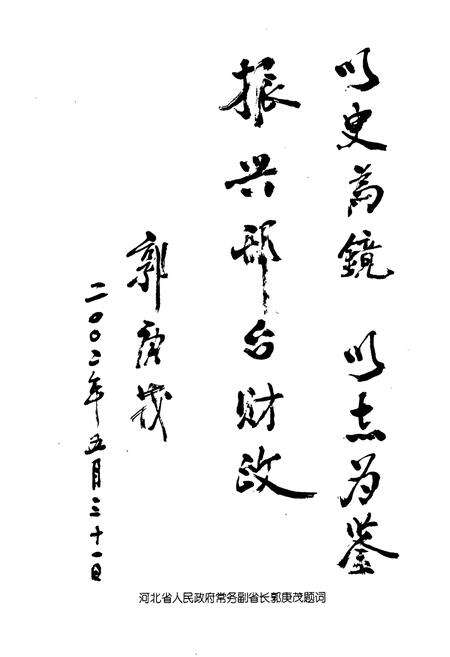 以史为镜 以志为鉴
振兴邢台财政
郭庚茂
二〇〇二年五月三十一日
河北省人民政府常务副省长郭庚茂题词